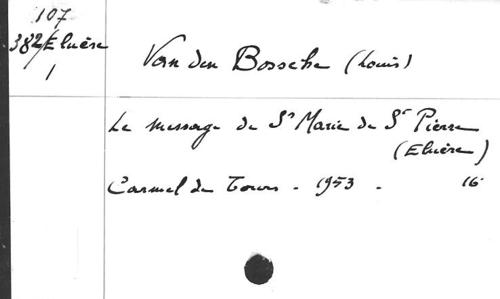 107
382/Eluère
1
Van den Bossche (Louis)
Le message de Sr Marie de St Pierre
(Eluère)
Carmel de Tours - 1953 - 16